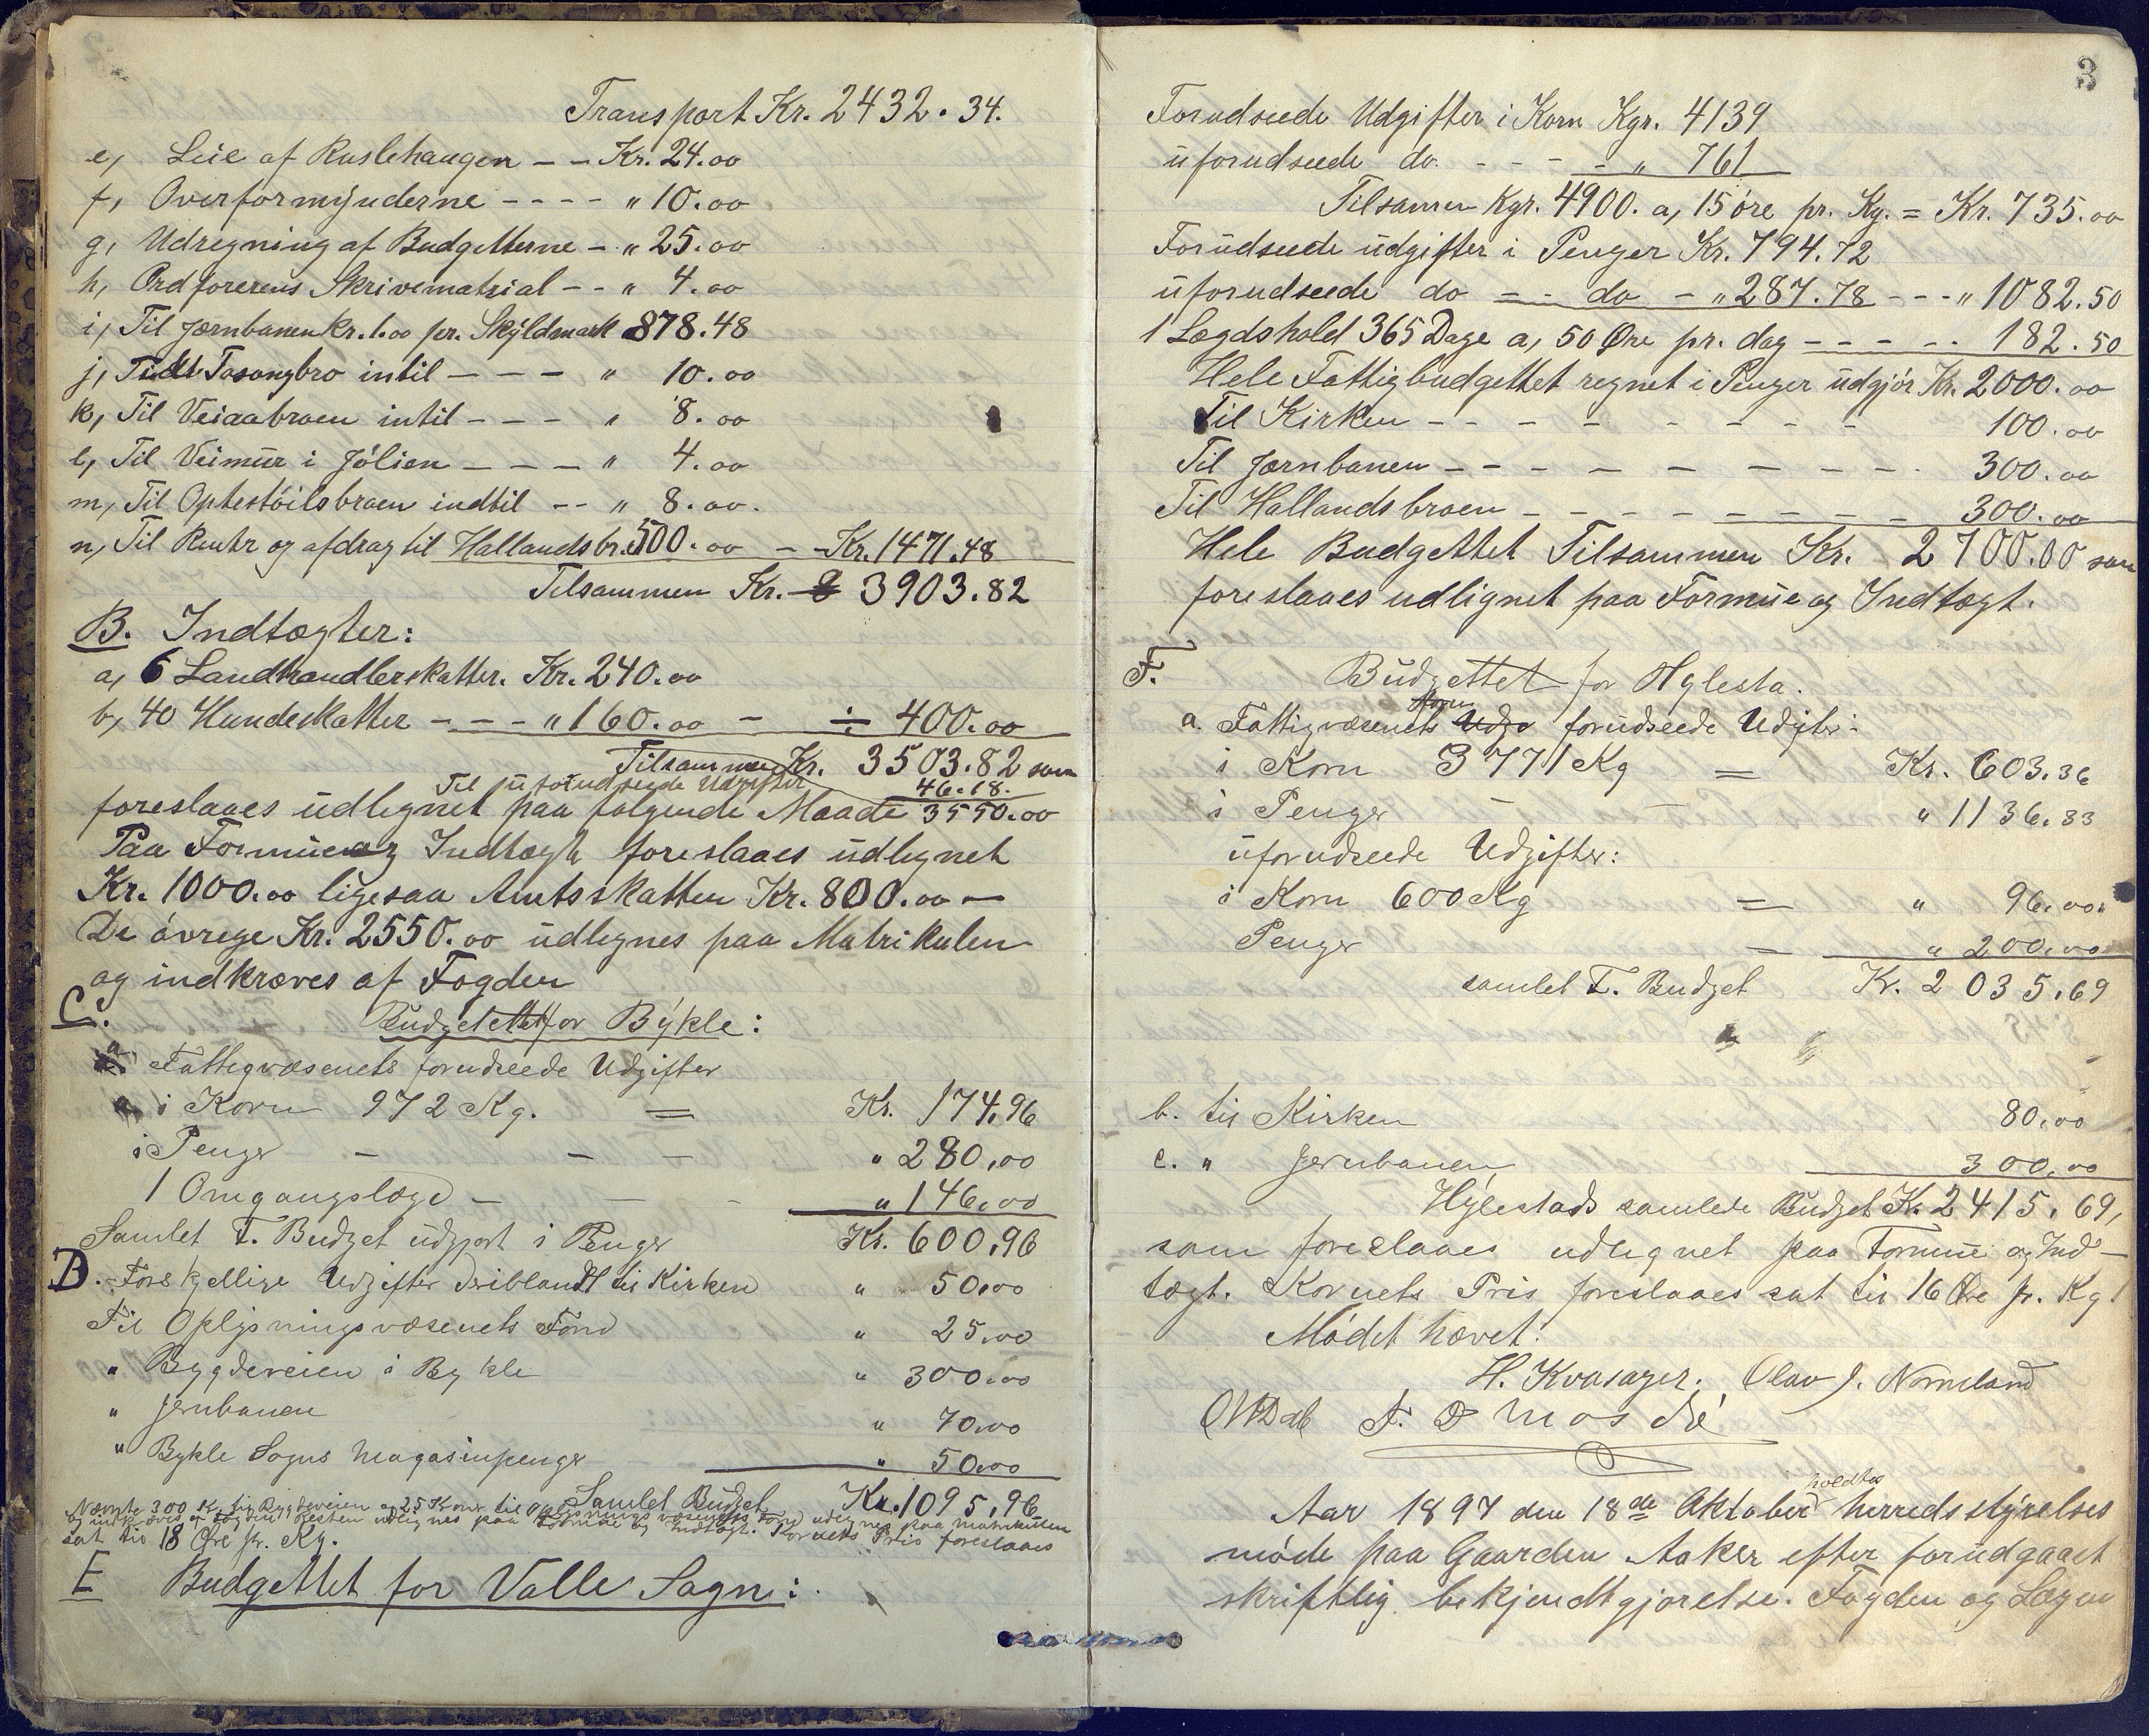 Transport Kr. 2432.34.
e, Leie af Ruslehaugen – – Kr. 24.00
f, Overformynderne – – – – " 10.00
g, Udregning af Budgetterne – " 25.00
h, Ordforerens Skrivematrial – – " 4.00
i, Til Jærnbanen Kr. 1.00 pr. Skyldmark 878.48
j, Tosongbro intil – – – " 10.00
k, Til Veiaabroen intil – – – " 8.00
l, Til Veimur i Jólien – – – " 4.00
m, Til Optestöilsbroen indtil – – " 8.00.
n, Til Renter og afdrag til Hallandsbr. 500.00 – Kr. 1471.48
Tilsammen Kr. 3903.82
B. Indtægter:
a, 6 Landhandlerskatter. Kr. 240.00
b, 40 Hundeskatter – – – " 160.00 – ÷ 400.00
Tilsammen Kr. 3503.82 som
Til uforudseede Udgifter 46.18.
foreslaaes udlignet paa følgende Maade 3550.00
Paa Formue og Indtægt foreslaaes udlignet
Kr. 1000.00 ligesaa Amtsskatten Kr. 800.00 –
De óvrege Kr. 2550.00 udlignes paa Matrikulen
og indkræves af Fogden
C. Budgettet for Bykle:
a. Fattigvæsenets forudseede Udgifter
i Korn 972 Kg. = Kr. 174,96
i Penger – – – " 280,00
1 Omgangslægd – – – " 146,00
Samlet F. Budget udgjort i Penger Kr. 600,96
D. Forskjellige Udgifter deriblandt til Kirken " 50,00
Til Oplysningsvæsenets Fond " 25,00
" Bygdeveien i Bykle " 300,00
" Jernbanen " 70,00
" Bykle Sogns Magasinpenger " 50,00
Samlet Budget Kr. 1095,96
Nævnte 300 Kr. til Bygdeveien og 25 Kroner til Oplysningsvæsenets Fond udlignes paa Matrikulen
og indkræves af Fogden. Resten udlignes paa Formue og Indtægt. Kornets Pris foreslaaes
sat til 18 Øre pr. Kg.
E Budgettet for Valle Sogn:
3
Forudseede Udgifter i Korn Kgr. 4139
uforudseede do. – – – – " 761
Tilsamen Kgr. 4900. a, 15 óre pr. Kg. = Kr. 735.00
Forudseede udgifter i Penger Kr. 794.72
uforudseede do – – do – " 287.78 – – – " 1082.50
1 Lægdshold 365 Dage a, 50 Øre pr. dag – – – – – 182.50
Hele Fattigbudgettet regnet i Penger udgjór Kr. 2000.00
Til Kirken – – – – – – – – 100.00
Til Jærnbanen – – – – – – – – – 300.00
Til Hallandsbroen – – – – – – – – – 300.00
Hele Budgettet Tilsammen Kr. 2700.00 som
foreslaaes udlignet paa Formue og Indtægt.
F. Budgettet for Hylesta.
a. Fattigvæsenets forudseede Udgifter:
i Korn 3771 Kg = Kr. 603.36
i Penger – – " 1136.33
uforudseede Udgifter:
i Korn 600 Kg = " 96,00.
Penger = " 200,00
samlet F. Budget Kr. 2035,69
b. til Kirken 80,00
c. " Jernbanen 300,00
Hylestads samlede Budget Kr. 2415,69,
som foreslaaes udlignet paa Formue og Ind-
tægt. Kornets Pris foreslaaes sat til 16 Øre pr. Kg!
Mödet hævet!
H. Kvasager. Olav J. Nomeland
Aar 1897 den 18de Oktober holdtes herredsstyrelses
móde paa Gaarden Aaker efter forudgaaet
skriftlig bekjendtgjorelse. Fogden og